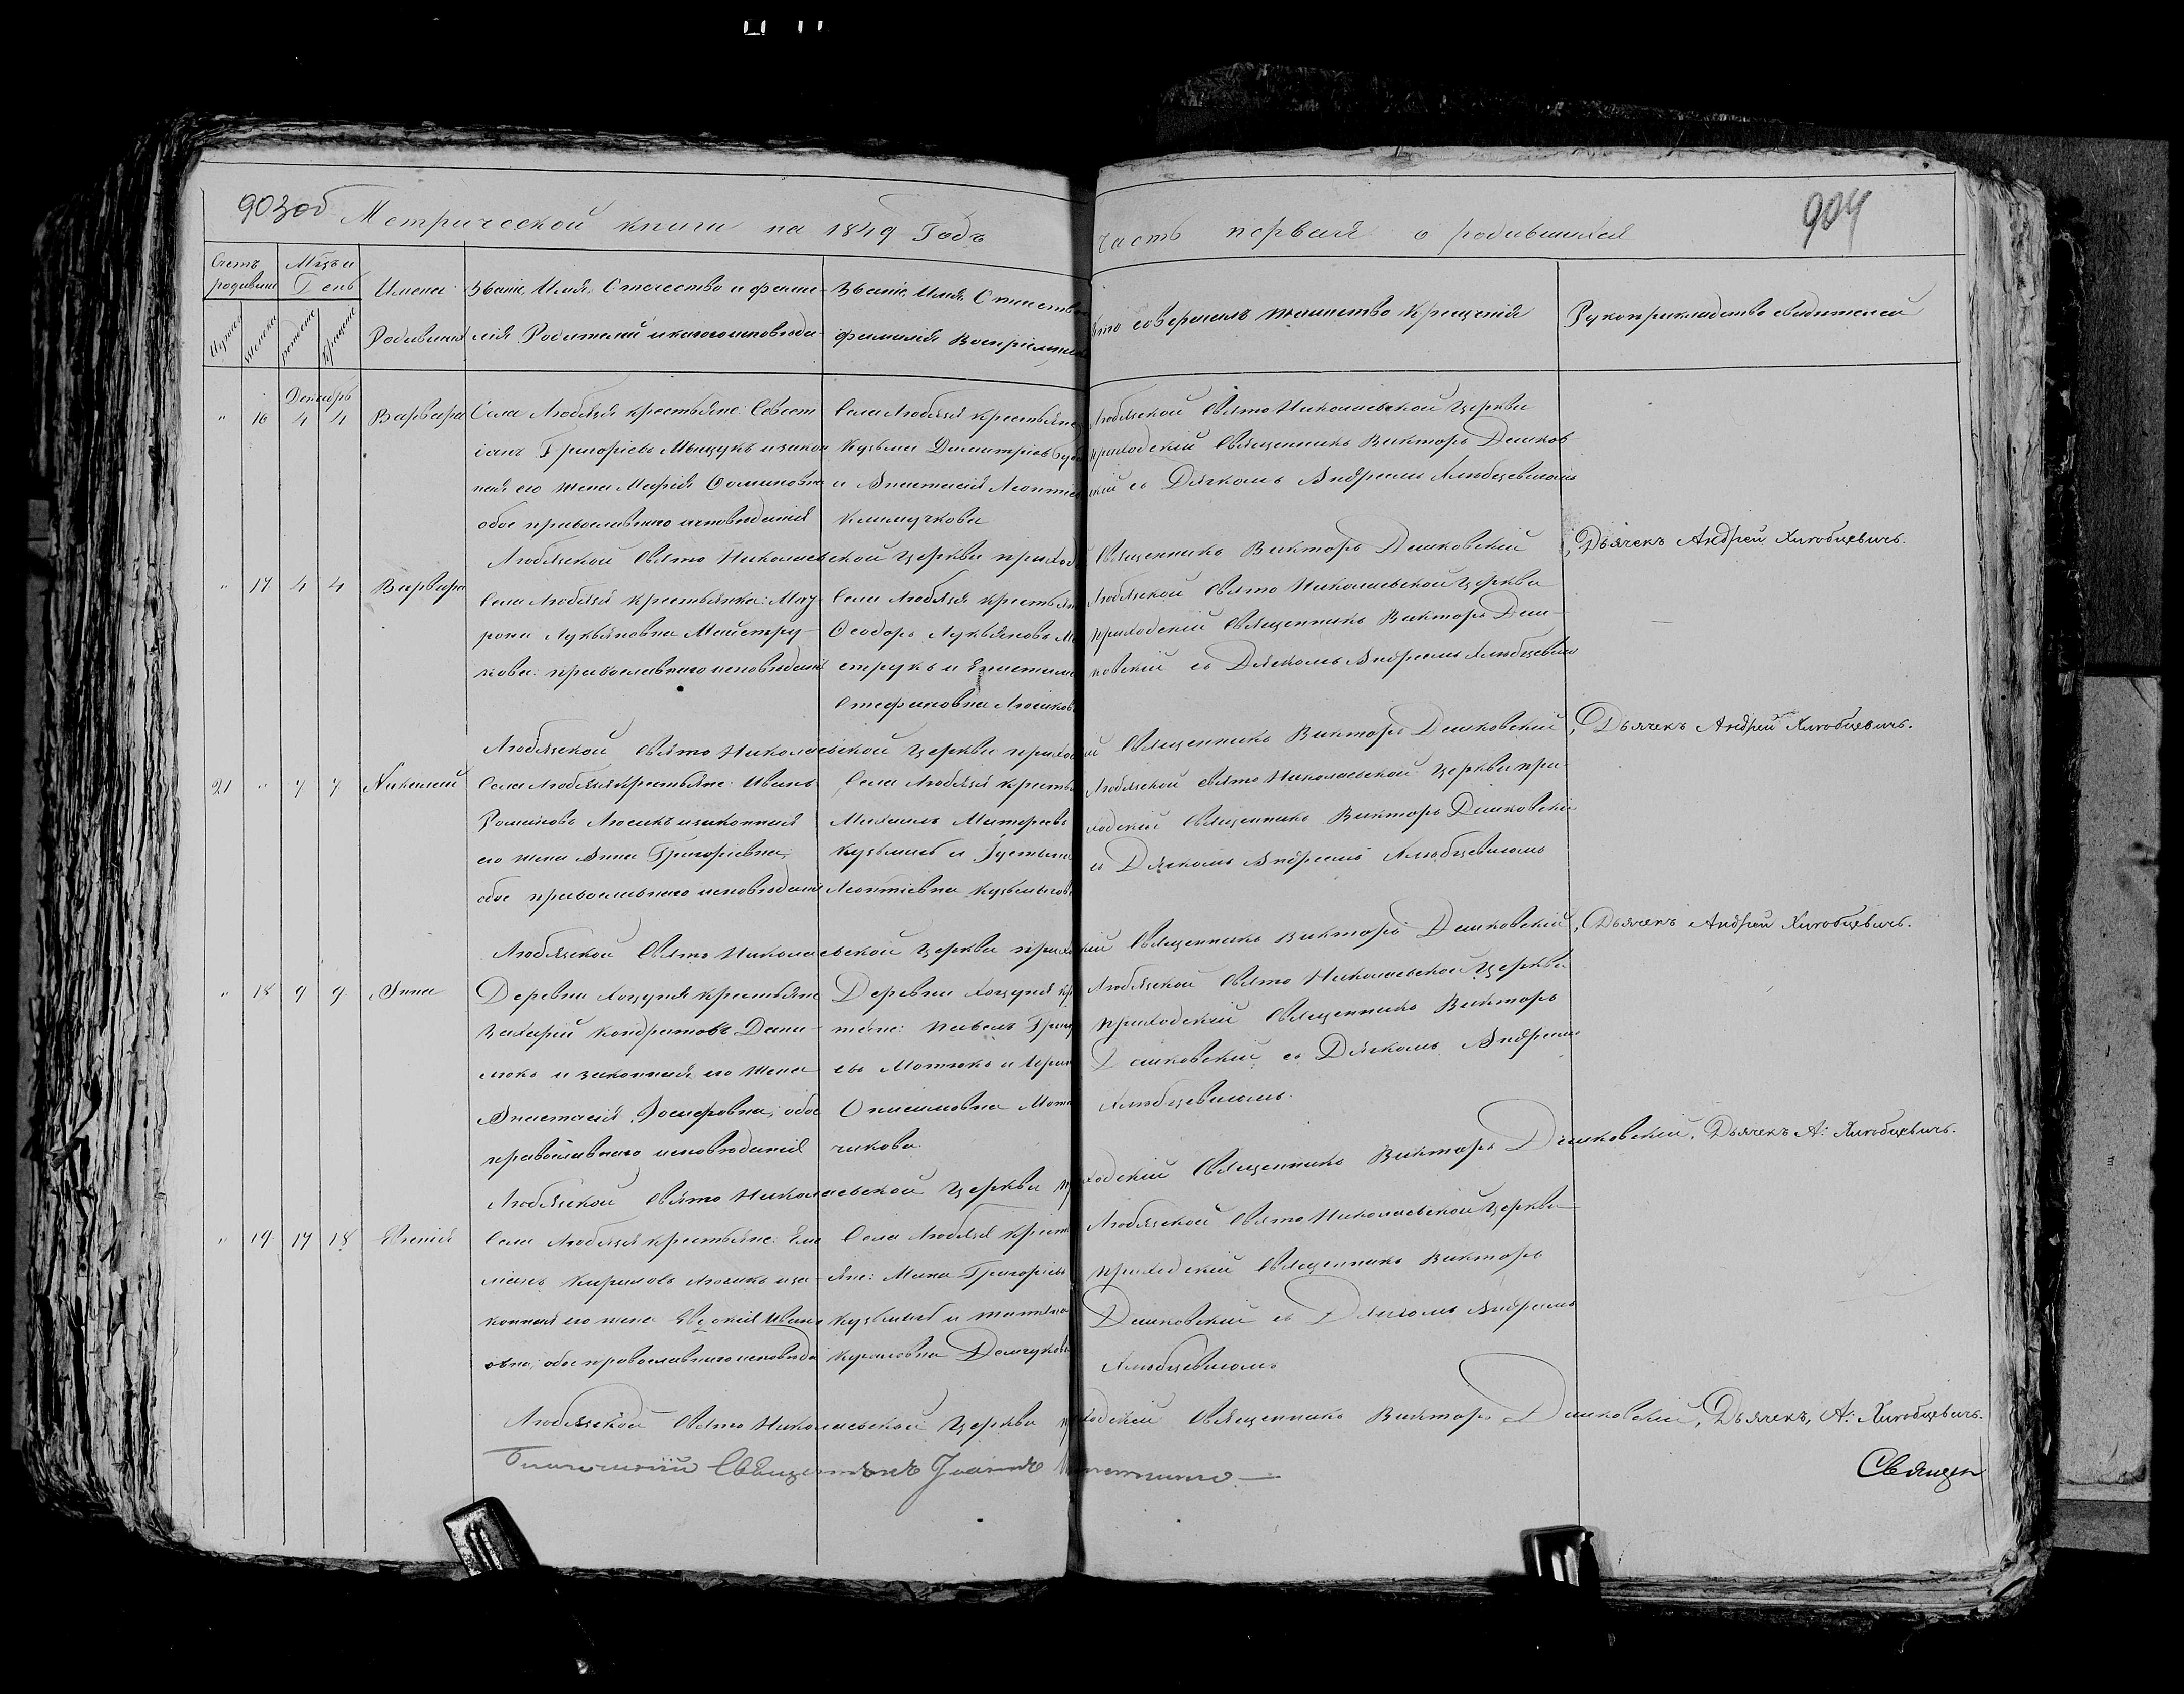 903об Метрической книги на 1849 Годъ
часть первая о родившихся
904
Счетъ родивши
Мцъ и День
Имена Родивших
Званіе, Имя, Отчество и фами-
лія Родителей и какого исповѣда-
Званіе, Имя, Отчеств
фамилія Воспріемник
Кто совершалъ таинство Крещенія
Рукоприкладство свидѣтелей
Мужеска
женска
рожденія
Крещенія
Декабрь
" 16 4 4 Варвара
Села Любязя крестьяне: Севаст
іанъ Григорьевъ Мыщукъ и закон
ная его жена Марія Фоминовна
обое православнаго исповѣданія
Села Любязя крестьяне
Кузьма Димитріевъ
и Анастасія Леонтіев
Климчукова
Любязской Свято Николаевской Церкви
приходскій Священникъ Викторъ Дашков
скій съ Дячкомъ Андреемъ Хлюбцевичомъ
Любязской Свято Николаевской Церкви приход Священникъ Викторъ Дашковскій, Дьячекъ Андрей Хлюбцевичъ.
" 17 4 4 Варвара
Села Любязя крестьянка: Мат-
рона Лукьяновна Майстру-
кова: православнаго исповѣданія
Села Любязя крестьян
Ѳеодоръ Лукьяновъ Ма
струкъ и
Стефановна Лосиков
Любязской Свято Николаевской Церкви
приходскій Священникъ Викторъ Даш-
ковскій съ Дячкомъ Андреемъ Хлюбцевичом
Любязской Свято Николаевской Церкви приход Священникъ Викторъ Дашковскій, Дьячекъ Андрей Хлюбцевичъ.
21 " 7 7 Николай
Села Любязя крестьяне: Иванъ
Романовъ Лосикъ и законная
его жена Анна Григорьевна;
обое православнаго исповѣданія
Села Любязя кресть
Михаилъ Матфеевъ
Кузьмичъ и Іустина
Леонтіевна Кузьмичов
Любязской свято Николаевской Церкви при-
ходскій Священникъ Викторъ Дашковскій
съ Дячкомъ Андреемъ Хлюбцевичомъ
Любязской Свято Николаевской Церкви приход кій Священникъ Викторъ Дашковскій, Дьячекъ Андрей Хлюбцевичъ.
" 18 9 9 Анна
Деревни Хоцуня крестьяне
Захарій Кондратовъ Дани-
люкъ и законная его жена
Анастасія Іосифовна; обое
православнаго исповѣданія
Деревни Хоцуня кр
тяне: Павелъ Григ
евъ Мотюкъ и Ирин
Онисимовна
чикова
Любязской Свято Николаевской Церкви
приходскій Священникъ Викторъ
Дашковскій съ Дячкомъ Андреемъ
Хлюбцевичомъ.
Любязской Свято Николаевской Церкви п ходскій Священникъ Викторъ Дашковскій, Дьячекъ А: Хлюбцевичъ.
" 19 17 18 Евгенія
Села Любязя крестьяне: Еме
ліанъ Кириловъ Лосикъ и за-
конная его жена Иван
овна; обое православнаго исповѣда
Села Любязя крест
яне: Мина Григорьевъ
Кузьмичъ и татіана
Демчуков
Любязской Свято Николаевской Церкви
приходскій Священникъ Викторъ
Дашковскій съ Дячкомъ Андреемъ
Хлюбцевичомъ
Любязской Свято Николаевской Церкви п ходскій Священникъ Викторъ Дашковскій, Дьячекъ, А: Хлюбцевичъ.
Священникъ Іоаннъ
Священ